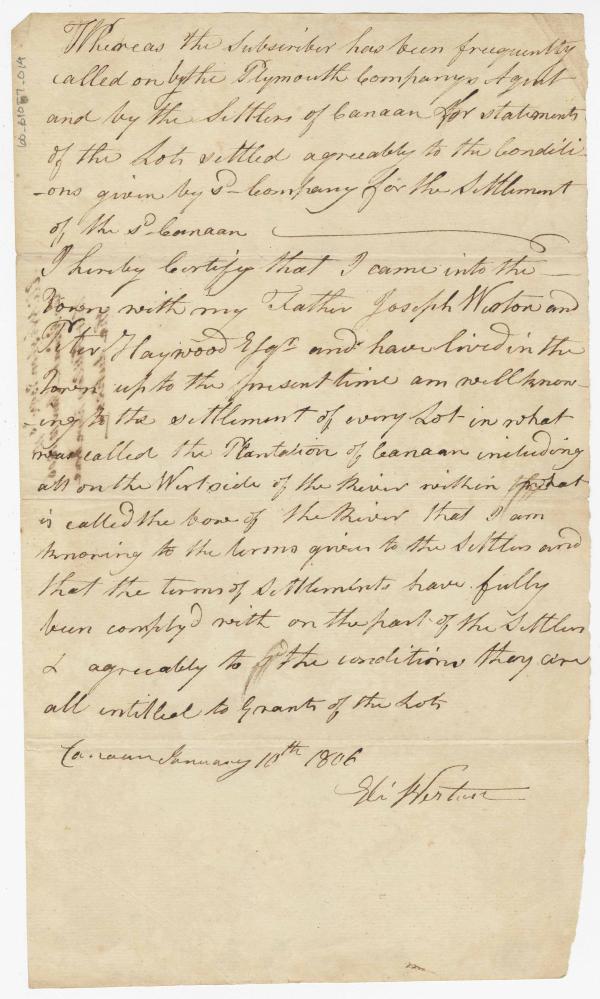 Whereas the Subscriber has been frequently
called on by the Plymouth Companys Agent
and by the Settlers of Canaan for statements
of the Lots settled agreeably to the Conditi-
-ons given by sd Company for the Settlement
of the sd Canaan
I hereby Certify that I came into the
Town with my Father Joseph Weston and
Peter Haywood Esqr and have lived in the
Town up to the present time am well know-
ing to the settlement of every Lot in what
was called the Plantation of Canaan including
all on the West side of the River within what
is called the bow of the River that I am
knowing to the terms given to the Settlers and
that the terms of Settlements have fully
been comply'd with on the part of the Settlers
& agreeably to the conditions they are
all intitled to Grants of the Lots
Canaan January 10th 1806
Eli Weston